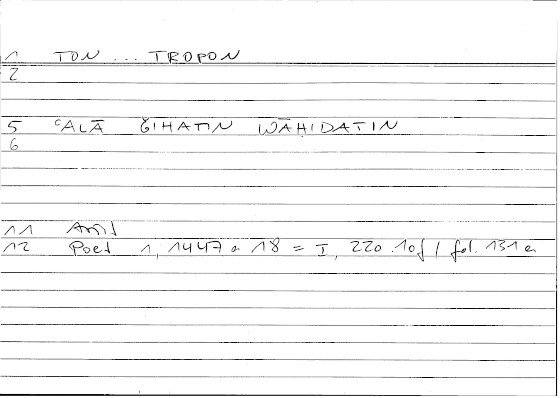 1 TON ... TROPON
2
5 ʿALĀ ǦIHATIN WĀHIDATIN
6
11 Arist
12 Poet 1, 1447 a 18 = I, 220.10f / fol. 131 a